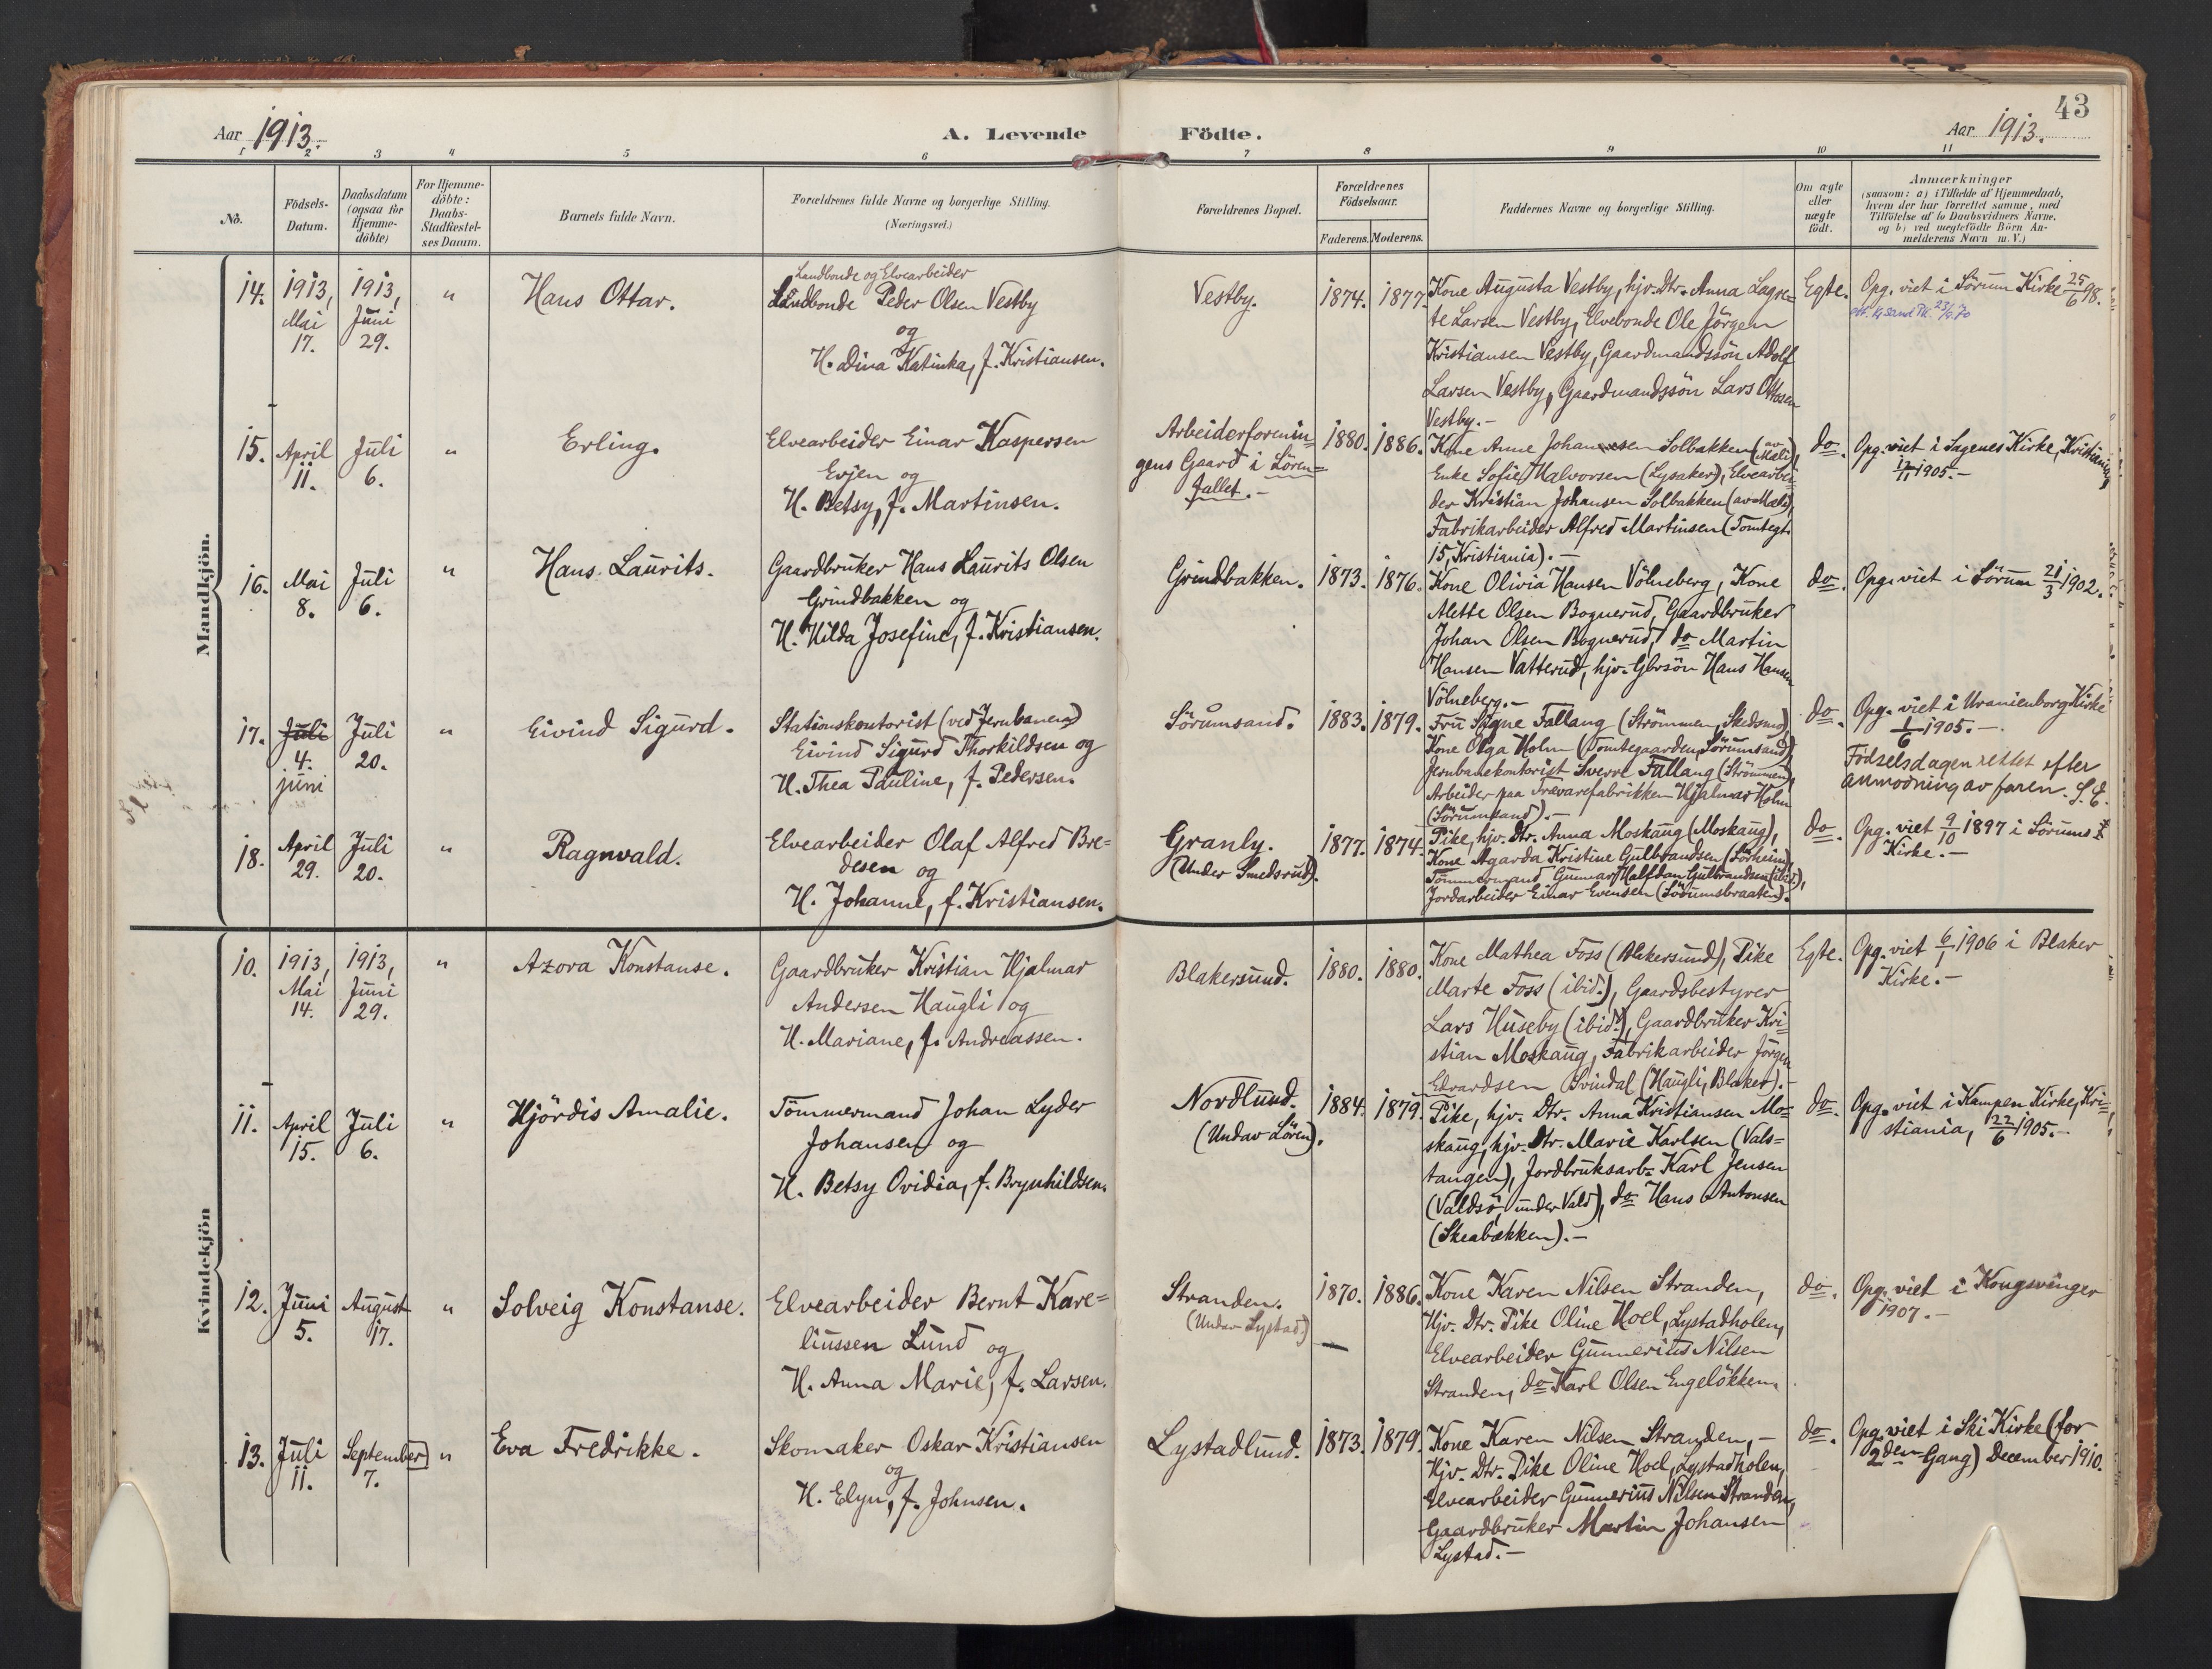 43
Aar 1913.
A. Levende
Födte.
Aar 1913.
1 2 3 4 5 6 7 8 9 10 11
No.
Födsels-
Datum.
Daabsdatum
(ogsaa for
Hjemme-
döbte)
For Hjemme-
döbte:
Daabs-
Stadfæstel-
ses Datum.
Barnets fulde Navn.
Forældrenes fulde Navne og borgerlige Stilling.
(Næringsvei.)
Forældrenes Bopæl.
Forældrenes
Födselsaar.
Faderens. Moderens.
Faddernes Navne og borgerlige Stilling.
Om ægte
eller
uægte
födt.
Anmærkninger
(saasom: a) i Tilfælde af Hjemmedaab,
hvem der har forrettet samme, med
Tilföielse af to Daabsvidners Navne.
og b) ved uægtefödte Börn An-
melderens Navn m. V.)
Mandkjön.
14.
1913,
Mai
17.
1913,
Juni
29.
"
Hans Ottar.
Landbonde og Elvearbeider
Landbonde Peder Olsen Vestby
og
H. Dina Katinka, f. Kristiansen.
Vestby.
1874. 1877.
Kone Augusta Vestby, hjv. Dtr. Anna Lagre=
te Larsen Vestby, Elvebonde Ole Jörgen
Kristiansen Vestby, Gaardmandssön Adolf
Larsen Vestby, Gaardmandssön Lars Ottosen
Vestby.-
Egte.
Opg. viet i Sörum Kirke 25/6 98.
15.
April
11.
Juli
6.
"
Erling.
Elvearbeider Einar Kaspersen
Evjen og
H. Betsy, f. Martinsen.
Arbeiderforenin=
gens Gaard i Sören=
fallet.-
1880. 1886.
Kone Anne Johannesen Solbakken (av Mæli),
Enke Sofie Halvorsen (Lysaker), Elvearbei=
der Kristian Johansen Solbakken (av Mæli),
Fabrikarbeider Alfred Martinsen (Tomtegt.
15, Kristiania).-
do.
Opg. viet i Sagenes Kirke, Kristiania,
12/11 1905.-
16.
Mai
8.
Juli
6.
"
Hans Laurits.
Gaardbruker Hans Laurits Olsen
Grindbakken og
H. Hilda Josefine, f. Kristiansen.
Grindbakken.
1873. 1876.
Kone Olivia Hansen Völneberg, Kone
Alette Olsen Bognerud, Gaardbruker
Johan Olsen Bognerud, do Martin
Hansen Vatterud, hjv. Gbrsön Hans Hansen
Völneberg.-
do.
Opg. viet i Sörum 21/3 1902.
17.
Juli
4.
juni
Juli
20.
"
Eivind Sigurd.
Stationskontorist (ved Jernbanen)
Eivind Sigurd Thorkildsen og
H. Thea Pauline, f. Pedersen.
Sörumsand.
1883. 1879.
Fru Signe Fallang (Strömmen, Skedsmo),
Kone Olga Holm (Tomtegaarden, Sörumsand),
Jernbanekontorist Sverre Fallang (Strömmen),
Arbeider paa Trævarefabrikken Hjalmar Holm
(Sörumsand).-
do.
Opg. viet i Uranienborg Kirke
1/6 1905.-
Födselsdagen rettet efter
anmodning av faren. S. E.
18.
April
29.
Juli
20.
"
Ragnvald.
Elvearbeider Olaf Alfred Bre=
desen og
H. Johanne, f. Kristiansen.
Granly.
(Under Smedsrud).
1877. 1874.
Pike, hjv. Dtr. Anna Moskaug (Moskaug),
Kone Agarda Kristine Gulbrandsen (Sörheim),
Tömmermand Gunnar Halfdan Gulbrandsen (ibid),
Jordarbeider Einar Evensen (Sörumsbraaten).
do.
Opg. viet 9/10 1897 i Sörums
Kirke.-
Kvindekjön
10.
1913,
Mai
14.
1913,
Juni
29.
"
Azora Konstanse.
Gaardbruker Kristian Hjalmar
Andersen Haugli og
H. Mariane, f. Andreassen.
Blakersund.
1880. 1880.
Kone Mathea Foss (Blakersund), Pike
Marte Foss (ibid.), Gaardsbestyrer
Lars Huseby (ibid.), Gaardbruker Kri=
stian Moskaug, Fabrikarbeider Jörgen
Edvardsen Svindal (Haugli, Blaker).-
Egte.
Opg. viet 6/1 1906 i Blaker
Kirke.-
11.
April
15.
Juli
6.
"
Hjördis Amalie.
Tömmermand Johan Lyder
Johansen og
H. Betsy Ovidia, f. Brynhildsen.
Nordlund.
(Under Lören).
1884. 1879.
Pike, hjv. Dtr. Anna Kristiansen Mo=
skaug, hjv. Dtr. Marie Karlsen (Vals=
tangen), Jordbruksarb. Karl Jensen
(Valdsö, under Vald), do Hans Antonsen
(Skeabækken).-
do.
Opg. viet i Kampen Kirke, Kri=
stiania, 22/6 1905.-
12.
Juni
5.
August
17.
"
Solveig Konstanse.
Elvearbeider Bernt Kare=
liussen Lund og
H. Anna Marie, f. Larsen.
Stranden.
(Under Lystad.)
1870. 1886.
Kone Karen Nilsen Stranden,
Hjv. Dtr. Pike Oline Hoel, Lystadholen,
Elvearbeider Gunnerius Nilsen
Stranden, do Karl Olsen Engelökken.
do.
Opg. viet i Kongsvinger
1907.-
13.
Juli
11.
September
7.
"
Eva Fredrikke.
Skomaker Oskar Kristiansen
og
H. Elyn, f. Johnsen.
Lystadlund.
1873. 1879.
Kone Karen Nilsen Stranden,-
Hjv. Dtr. Pike Oline Hoel, Lystadholen,
Elvearbeider Gunnerius Nilsen Stranden,
Gaardbruker Martin Johansen
Lystad.-
do.
Opg. viet i Ski Kirke (for
2den Gang) December 1910.